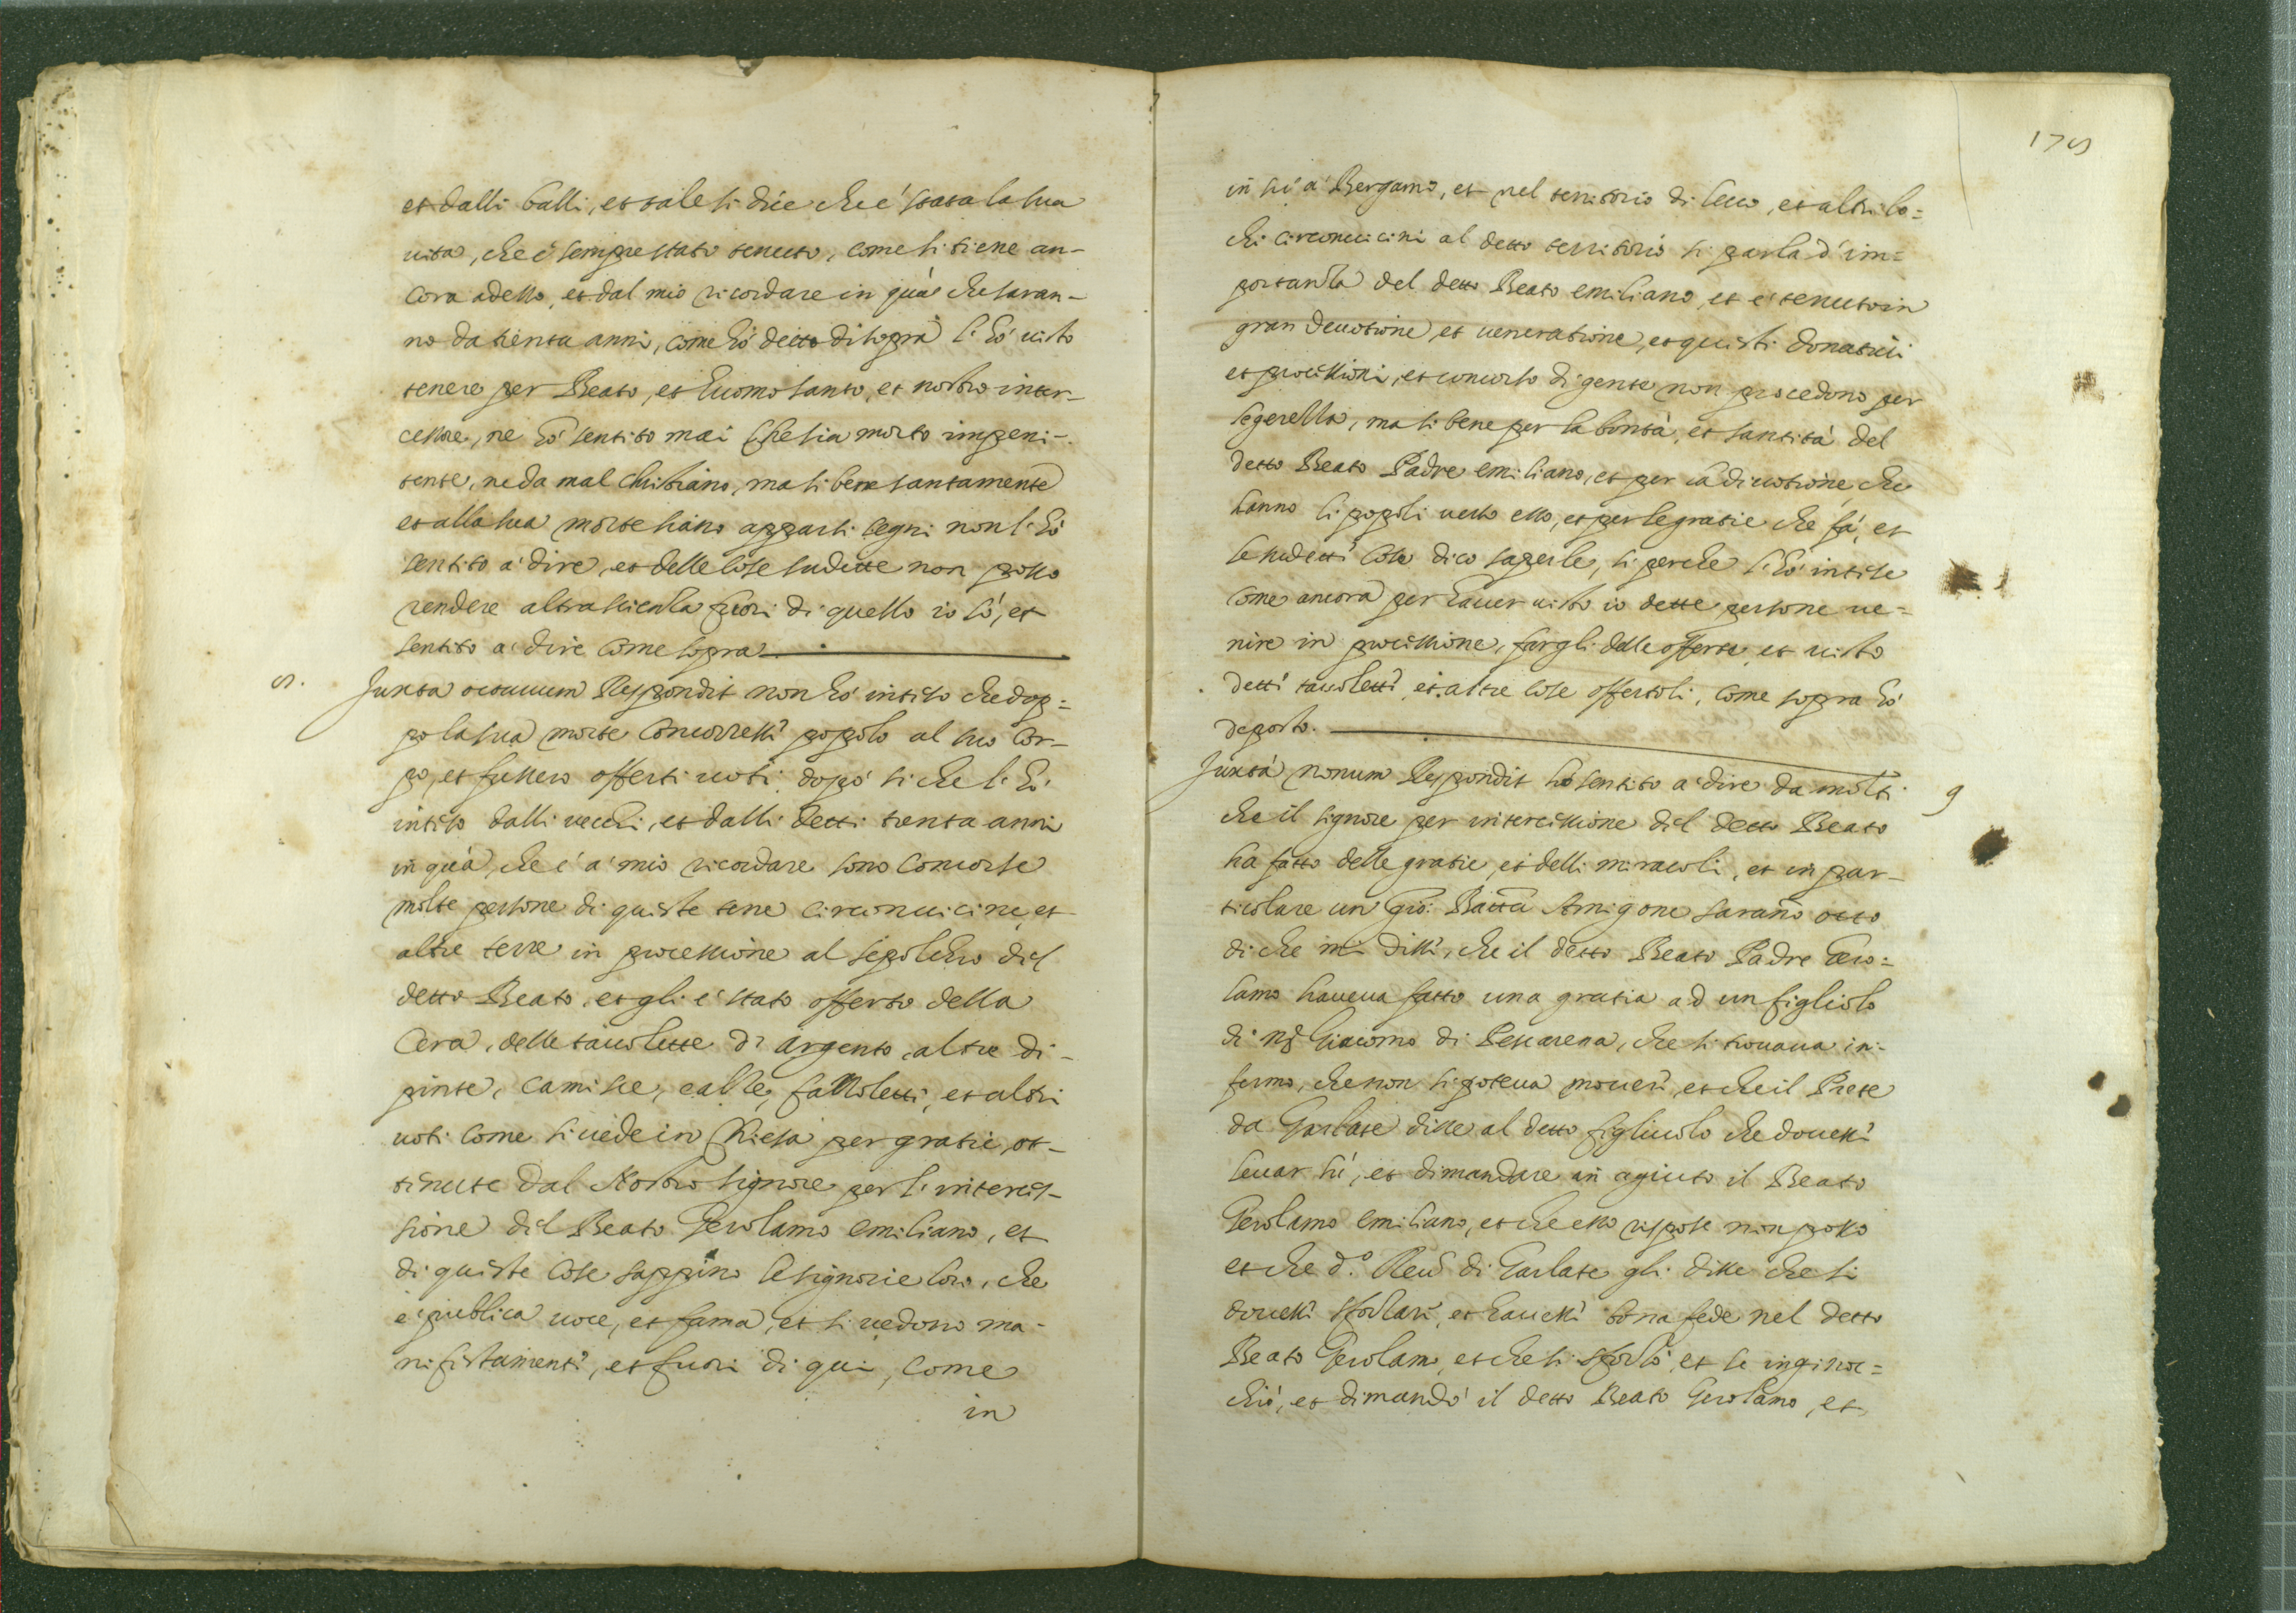 et dalli balli, et tale si dice che é stata la sua
uita, che é sempre stato tenuto, come si tiene an-
cora adesso, et dal mio ricordare in quà che saran-
no da trenta anni, come hó detto di sopra l'hó uisto
tenere per Beato, et huomo santo, et nostro inter-
cessore, ne hó sentito mai che sia morto impeni-
tente, ne da mal christiano, ma si bene santamente
et alla sua morte siano apparsi segni non l'hó
sentito a' dire, et delle cose sudette non posso
rendere altra scienza fuori di quello io só, et
sentito a' dire come sopra
8. Juxta octauum Respondit non hó inteso che dop=
po la sua morte concorressi popolo al suo cor-
po, et fussero offerti uoti, dopó si che l'hó
inteso dalli vecchi, et dalli detti trenta anni
in quà, che é a' mio ricordare sono concorse
molte persone di queste terre circonuicine, et
altre terre in processione al sepolchro del
detto Beato, et gli é stato offerto della
cera, delle tauolette di argento, altre di-
pinte, camisce, calze, fazzoletti, et altri
uoti come si uede in chiesa per gratie ot-
tenute dal Nostro Signore per l'interces-
sione del Beato Gerolamo emiliano, et
di queste cose sappino le signorie loro, che
é publica uoce, et fama, et si uedono ma-
nifestamente, et fuori di qui, come
in
175
in sú a' Bergamo, et nel territorio di lecco, et altri lo=
chi circonuicini al detto territorio si parla d'im=
portanza del detto Beato emiliano, et é tenuto in
gran deuotione, et ueneratione, et questi donatiui
et processioni, et concorso di gente non procedono per
legerezza, ma si bene per la bontà, et santità del
detto Beato Padre emiliano, et per la diuotione che
hanno li popoli uerso esso, et per le gratie che fá, et
le sudetti cose dico saperle, si perche l'hó intese
come ancora per hauer uisto io dette persone ue-
nire in processione, fargli delle offerte, et uisto
detti tauoletti, et altre cose offertoli, come sopra hó
deposto.
Juxtà nonum Respondit hó sentito a' dire da molti 9
che il signore per intercessione del detto Beato
ha fatto delle gratie, et delli miracoli, et in par-
ticolare un Gio: Batta Amigone saranno otto
di che mi dissi, che il detto Beato Padre Gero=
lamo haueua fatto una gratia ad un figliolo
di Giacomo di Pescarena, che si trouaua in-
fermo, che non si poteua moueri, et che il Prete
da Garlate disse al detto figliuolo che douessi
leuar sú, et dimandare in agiuto il Beato
Gerolamo emiliano, et che esso rispose non posso
et che d.º Reu.do di Garlate gli disse che si
douessi sforzare, et hauessi bona fede nel detto
Beato Gerolamo, et che si sforzó, et se inginoc=
chió, et dimandó il detto Beato Gerolamo, et